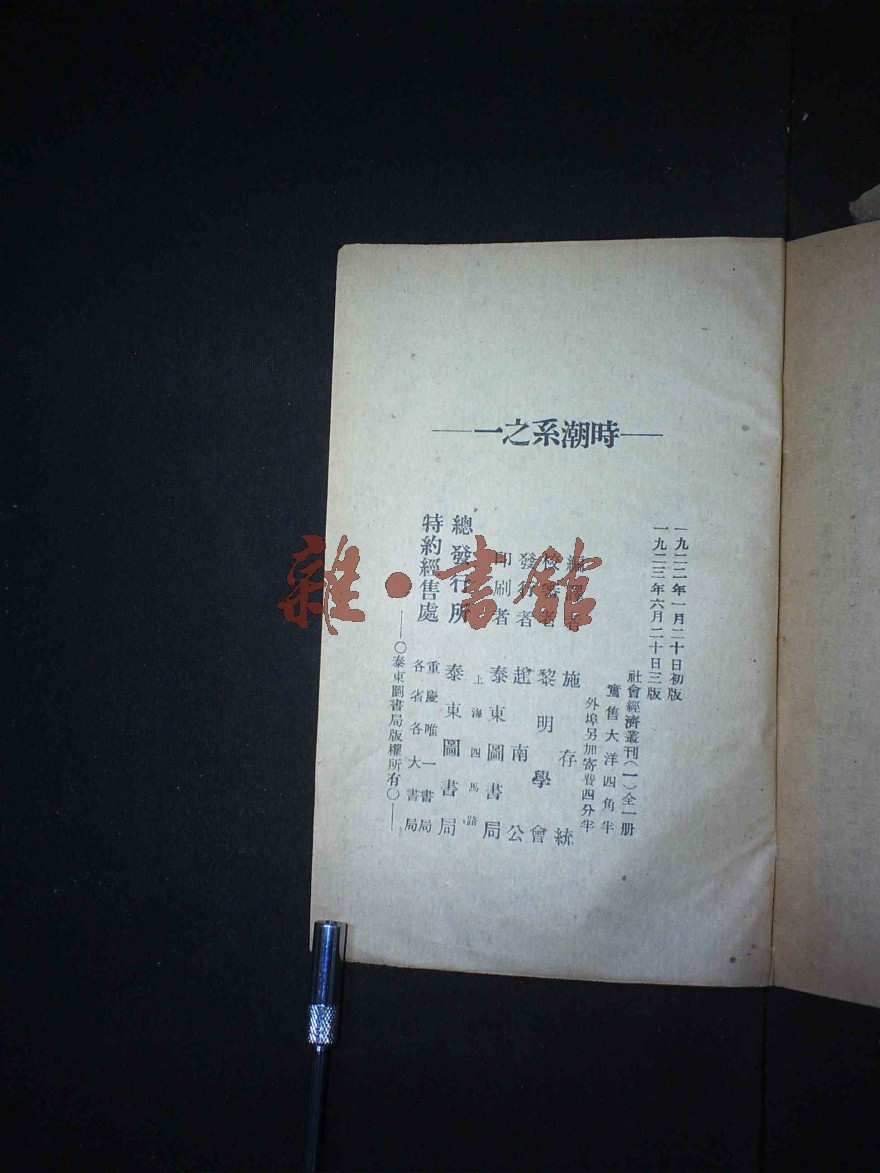 時潮系之一
一九二二年一月二十日初版
一九二三年六月二十日三版
社會經濟叢刊(一)全一册
實售大洋四角半
外埠另加寄費四分半
編 者 施存統
者 黎明學會
發行者 趙南公
印刷者 泰東圖書局
上海四馬路
總發行所 泰東圖書局
特約經售處 重慶唯一書局
各省各大書局
○泰東圖書局版權所有○
雜·書館